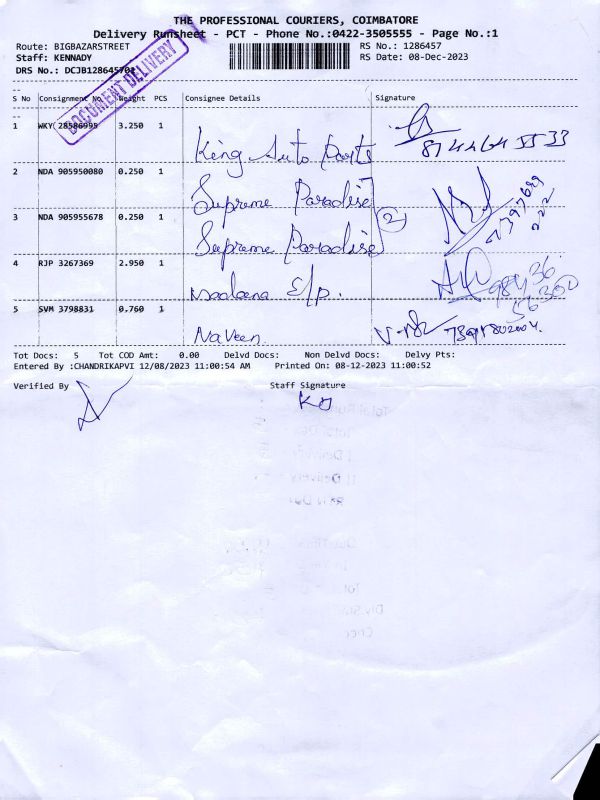 THE PROFESSIONAL COURIERS, COIMBATORE
Delivery Runsheet - PCT - Phone No.:0422-3505555 - Page No.:1
Route: BIGBAZARSTREET RS No.: 1286457
Staff: KENNADY RS Date: 08-Dec-2023
DRS No.: DCJB1286457
DOCUMENT DELIVERY
S No Consignment No. Weight PCS Consignee Details Signature
1 WKY( 28586995 3.250 1 King Auto Parts
2 NDA 905950080 0.250 1 Supreme Paradise
2
3 NDA 905955678 0.250 1 Supreme Paradise
4 RJP 3267369 2.950 1 E/p.
5 SVM 3798831 0.760 1 Naveen.
Tot Docs: 5 Tot COD Amt: 0.00 Delvd Docs: Non Delvd Docs: Delvy Pts:
Entered By :CHANDRIKAPVI 12/08/2023 11:00:54 AM Printed On: 08-12-2023 11:00:52
Verified By Staff Signature
KD